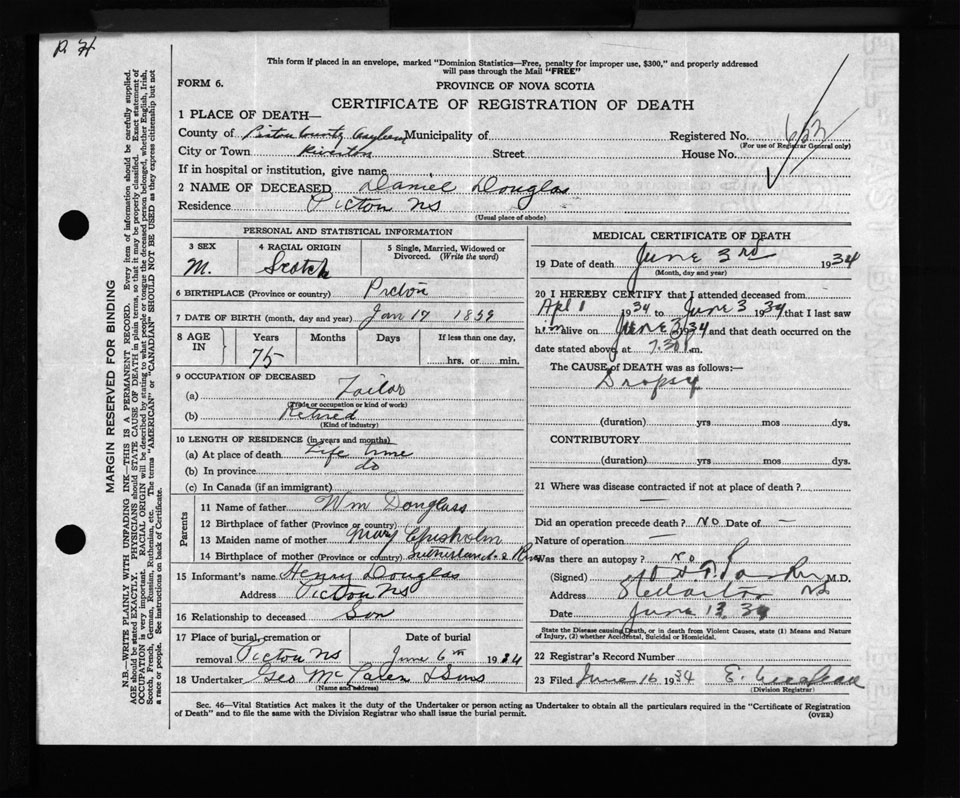 P. H
This form if placed in an envelope, marked "Dominion Statistics—Free, penalty for improper use, $300," and properly addressed
will pass through the Mail "FREE"
FORM 6.
PROVINCE OF NOVA SCOTIA
CERTIFICATE OF REGISTRATION OF DEATH
1 PLACE OF DEATH—
County of Pictou County Asylum Municipality of
Registered No. 653
(For use of Registrar General only)
City or Town Riverton Street House No.
If in hospital or institution, give name
2 NAME OF DECEASED Daniel Douglas
Residence Pictou NS
(Usual place of abode)
MARGIN RESERVED FOR BINDING
N.B.—WRITE PLAINLY WITH UNFADING INK—THIS IS A PERMANENT RECORD. Every item of information should be carefully supplied.
AGE should be stated EXACTLY. PHYSICIANS should STATE CAUSE OF DEATH in plain terms, so that it may be properly classified. Exact statement of
OCCUPATION is very important. RACIAL ORIGIN will be described by stating to what people or tongue the deceased person belonged, whether English, Irish,
Scotch, French, German, Russian, Ruthenian, etc. The terms "AMERICAN" or "CANADIAN" SHOULD NOT BE USED as they express citizenship but not
a race or people. See instructions on back of Certificate.
PERSONAL AND STATISTICAL INFORMATION
3 SEX
M.
4 RACIAL ORIGIN
Scotch
5 Single, Married, Widowed or
Divorced. (Write the word)
6 BIRTHPLACE (Province or country) Pictou
7 DATE OF BIRTH (month, day and year) Jan 17 1859
8 AGE
IN
Years
75
Months
Days
If less than one day,
hrs. or min.
9 OCCUPATION OF DECEASED
(a) Tailor
(Trade or occupation or kind of work)
(b) Retired
(Kind of industry)
10 LENGTH OF RESIDENCE (in years and months)
(a) At place of death Life time
(b) In province do
(c) In Canada (if an immigrant)
Parents
11 Name of father Wm Douglass
12 Birthplace of father (Province or country)
13 Maiden name of mother Mary Chisholm
14 Birthplace of mother (Province or country) Sutherland's River
15 Informant's name Henry Douglas
Address Pictou NS
16 Relationship to deceased Son
17 Place of burial, cremation or
removal Pictou NS
Date of burial
June 6th 1934
18 Undertaker Geo McLaren & Sons
(Name and address)
MEDICAL CERTIFICATE OF DEATH
19 Date of death June 3rd 1934
(Month, day and year)
20 I HEREBY CERTIFY that I attended deceased from
Apl 1 1934 to June 3 1934 that I last saw
him alive on June 3 1934 and that death occurred on the
date stated above, at 7.30 m.
The CAUSE OF DEATH was as follows:—
Dropsy
(duration) yrs mos dys.
CONTRIBUTORY
(duration) yrs mos dys.
21 Where was disease contracted if not at place of death?
—
Did an operation precede death? No Date of —
Nature of operation —
Was there an autopsy? No
(Signed) M.D.
Address Stellarton NS
Date June 13, 34
State the Disease causing Death, or in death from Violent Causes, state (1) Means and Nature
of Injury, (2) whether Accidental, Suicidal or Homicidal.
22 Registrar's Record Number
23 Filed June 16 1934 E.
(Division Registrar)
Sec. 46—Vital Statistics Act makes it the duty of the Undertaker or person acting as Undertaker to obtain all the particulars required in the "Certificate of Registration
of Death" and to file the same with the Division Registrar who shall issue the burial permit.
(OVER)